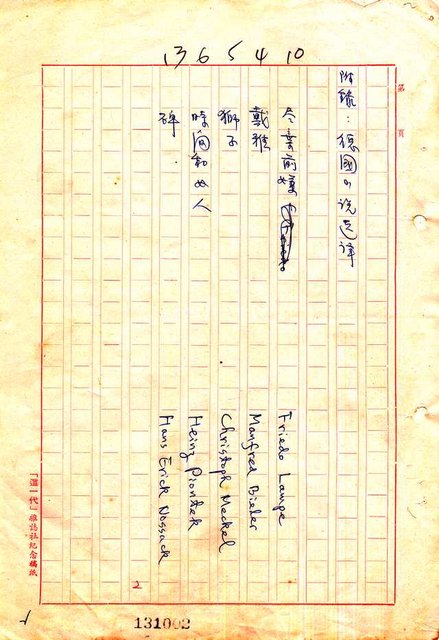 13 6 5 4 10
第 頁
附錄：德國小說選譯
令妻前嫂
戴雅
獅子
時間和女人
碑
Friedo Lampe
Manfred Bieler
Christoph Meckel
Heinz Piontek
Hans Erick Nossack
「這一代」雜誌社紀念稿紙
2
131002